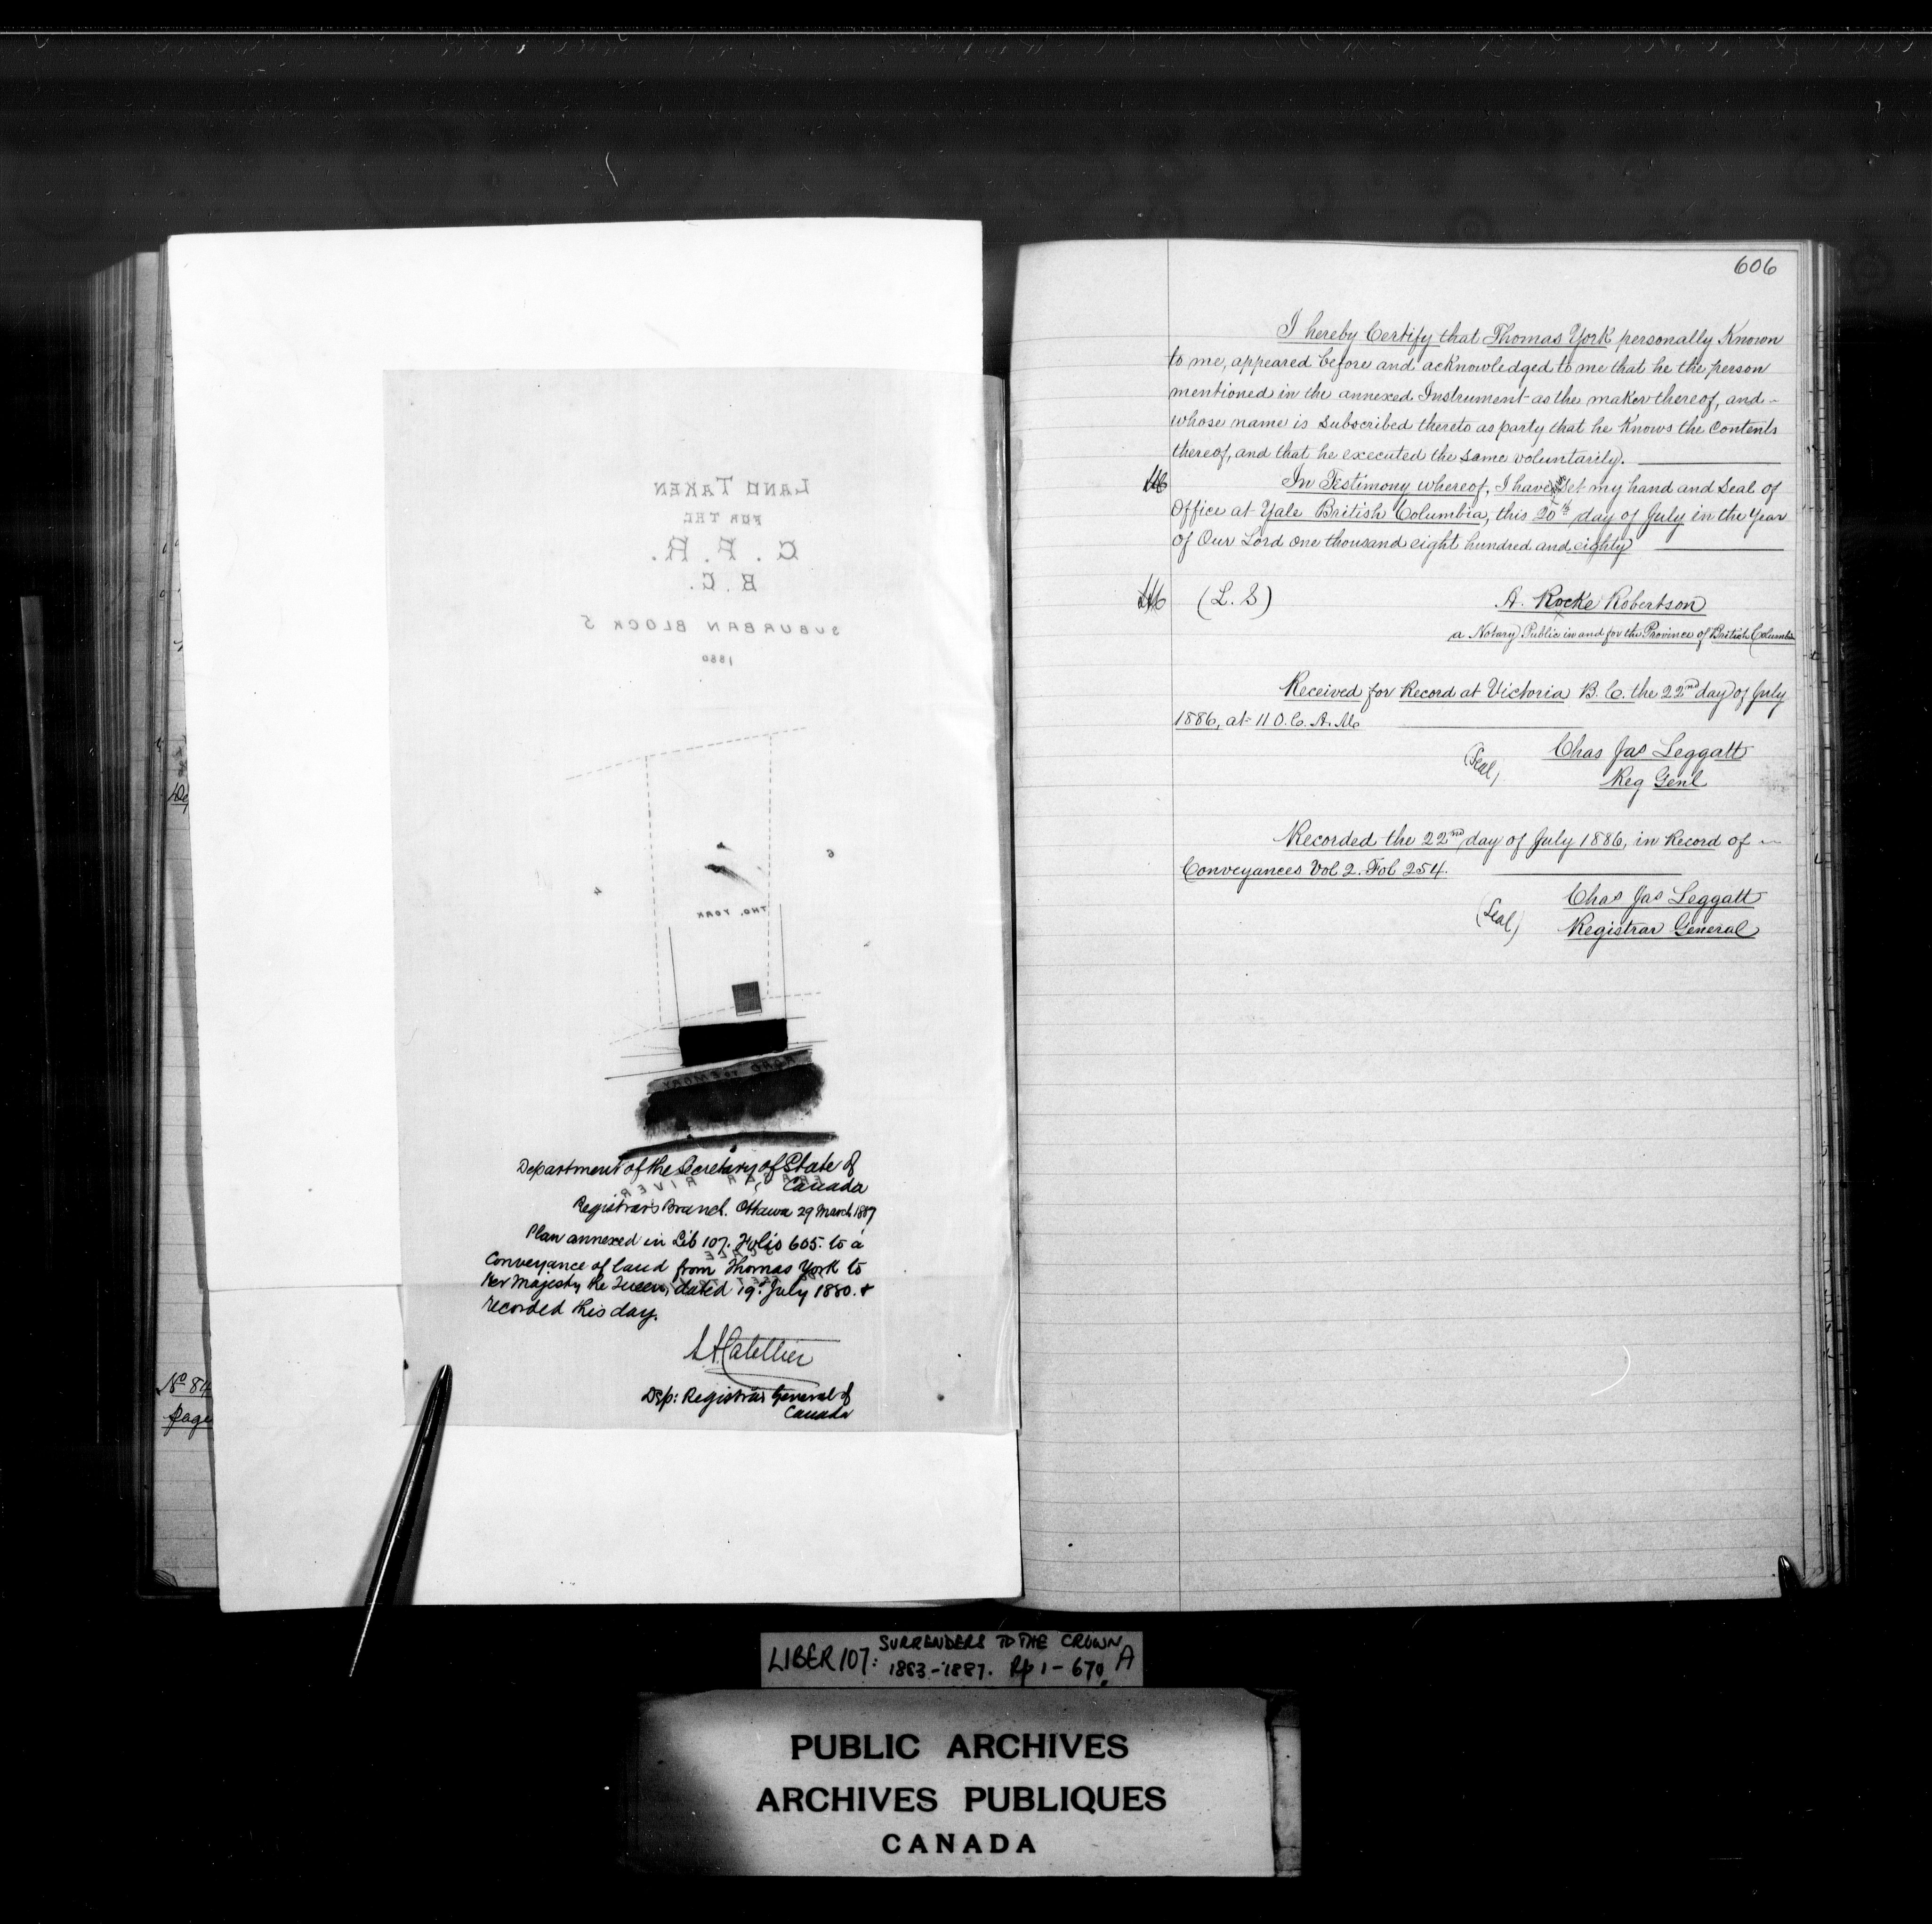 LAND TAKEN
FOR THE
C. P. R.
B. C.
SUBURBAN BLOCK 5
1880
6
4
THO. YORK
ROAD TO EMORY
RIVER
SCALE
Department of the Secretary of State of
Canada
Registrar's Branch. Ottawa 29 March 1887
Plan annexed in Lib 107. Folio 605. to a
Conveyance of land from Thomas York to
Her Majesty the Queen, dated 19th July 1880. &
recorded this day.
L A Catellier
Dep: Registrar General of
Canada
No 84
page
606
I hereby Certify that Thomas York personally Known
to me, appeared before and acknowledged to me that he the person
mentioned in the annexed Instrument as the maker thereof, and -
whose name is Subscribed thereto as party that he Knows the Contents
thereof, and that he executed the same voluntarily.
In Testimony whereof, I have set my hand and Seal of
Office at Yale British Columbia, this 20th day of July in the Year
of Our Lord one thousand eight hundred and eighty
(L. S) A. Rocke Robertson
a Notary Public in and for the Province of British Columbia
Received for Record at Victoria B. C. the 22nd day of July
1886, at 11 O. C. A. M.
(Seal) Chas Jas Leggatt
Reg Genl
Recorded the 22nd day of July 1886, in Record of
Conveyances Vol 2. Fol 254.
(Seal) Chas Jas Leggatt
Registrar General
LIBER 107: SURRENDERS TO THE CROWN
1883-1887. Pp 1-670. A
PUBLIC ARCHIVES
ARCHIVES PUBLIQUES
CANADA